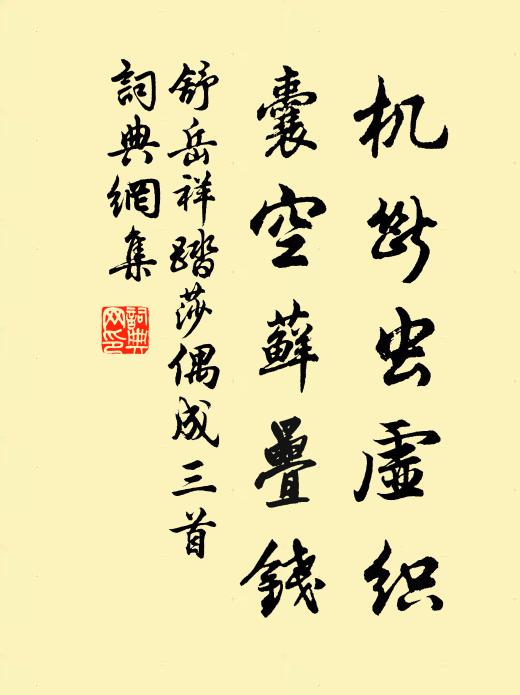 机断虫虚织
囊空蘚疊錢
舒岳祥踏莎偶成三首
詞典網集
詞典网印